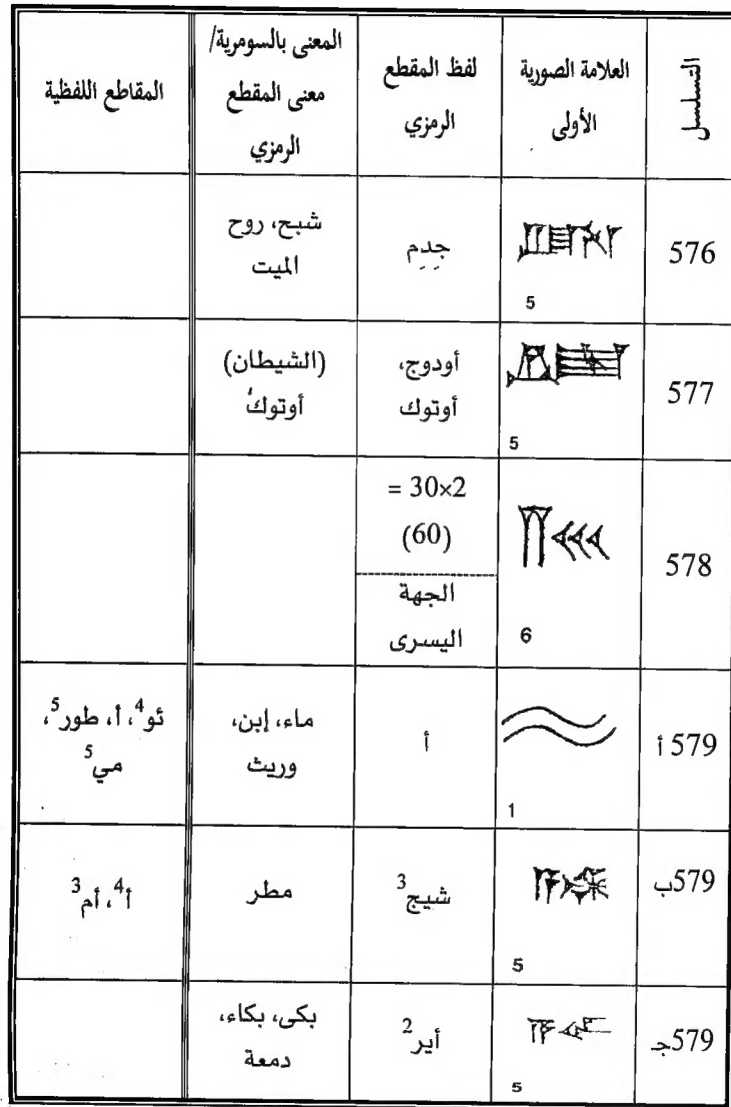 التسلسل
العلامة الصورية
الأولى
لفظ المقطع
الرمزي
المعنى بالسومرية/
معنى المقطع
الرمزي
المقاطع اللفظية
576
5
جِدِم
شبح، روح
الميت
577
5
أودوج،
أوتوك
(الشيطان)
أوتوكُ
578
6
2×30 =
(60)
الجهة
اليسرى
579 أ
1
أ
ماء، إبن،
وريث
ئو⁴، أ، طور⁵،
مي⁵
579ب
5
شيج³
مطر
أ⁴، أم³
579جـ
5
أير²
بكى، بكاء،
دمعة